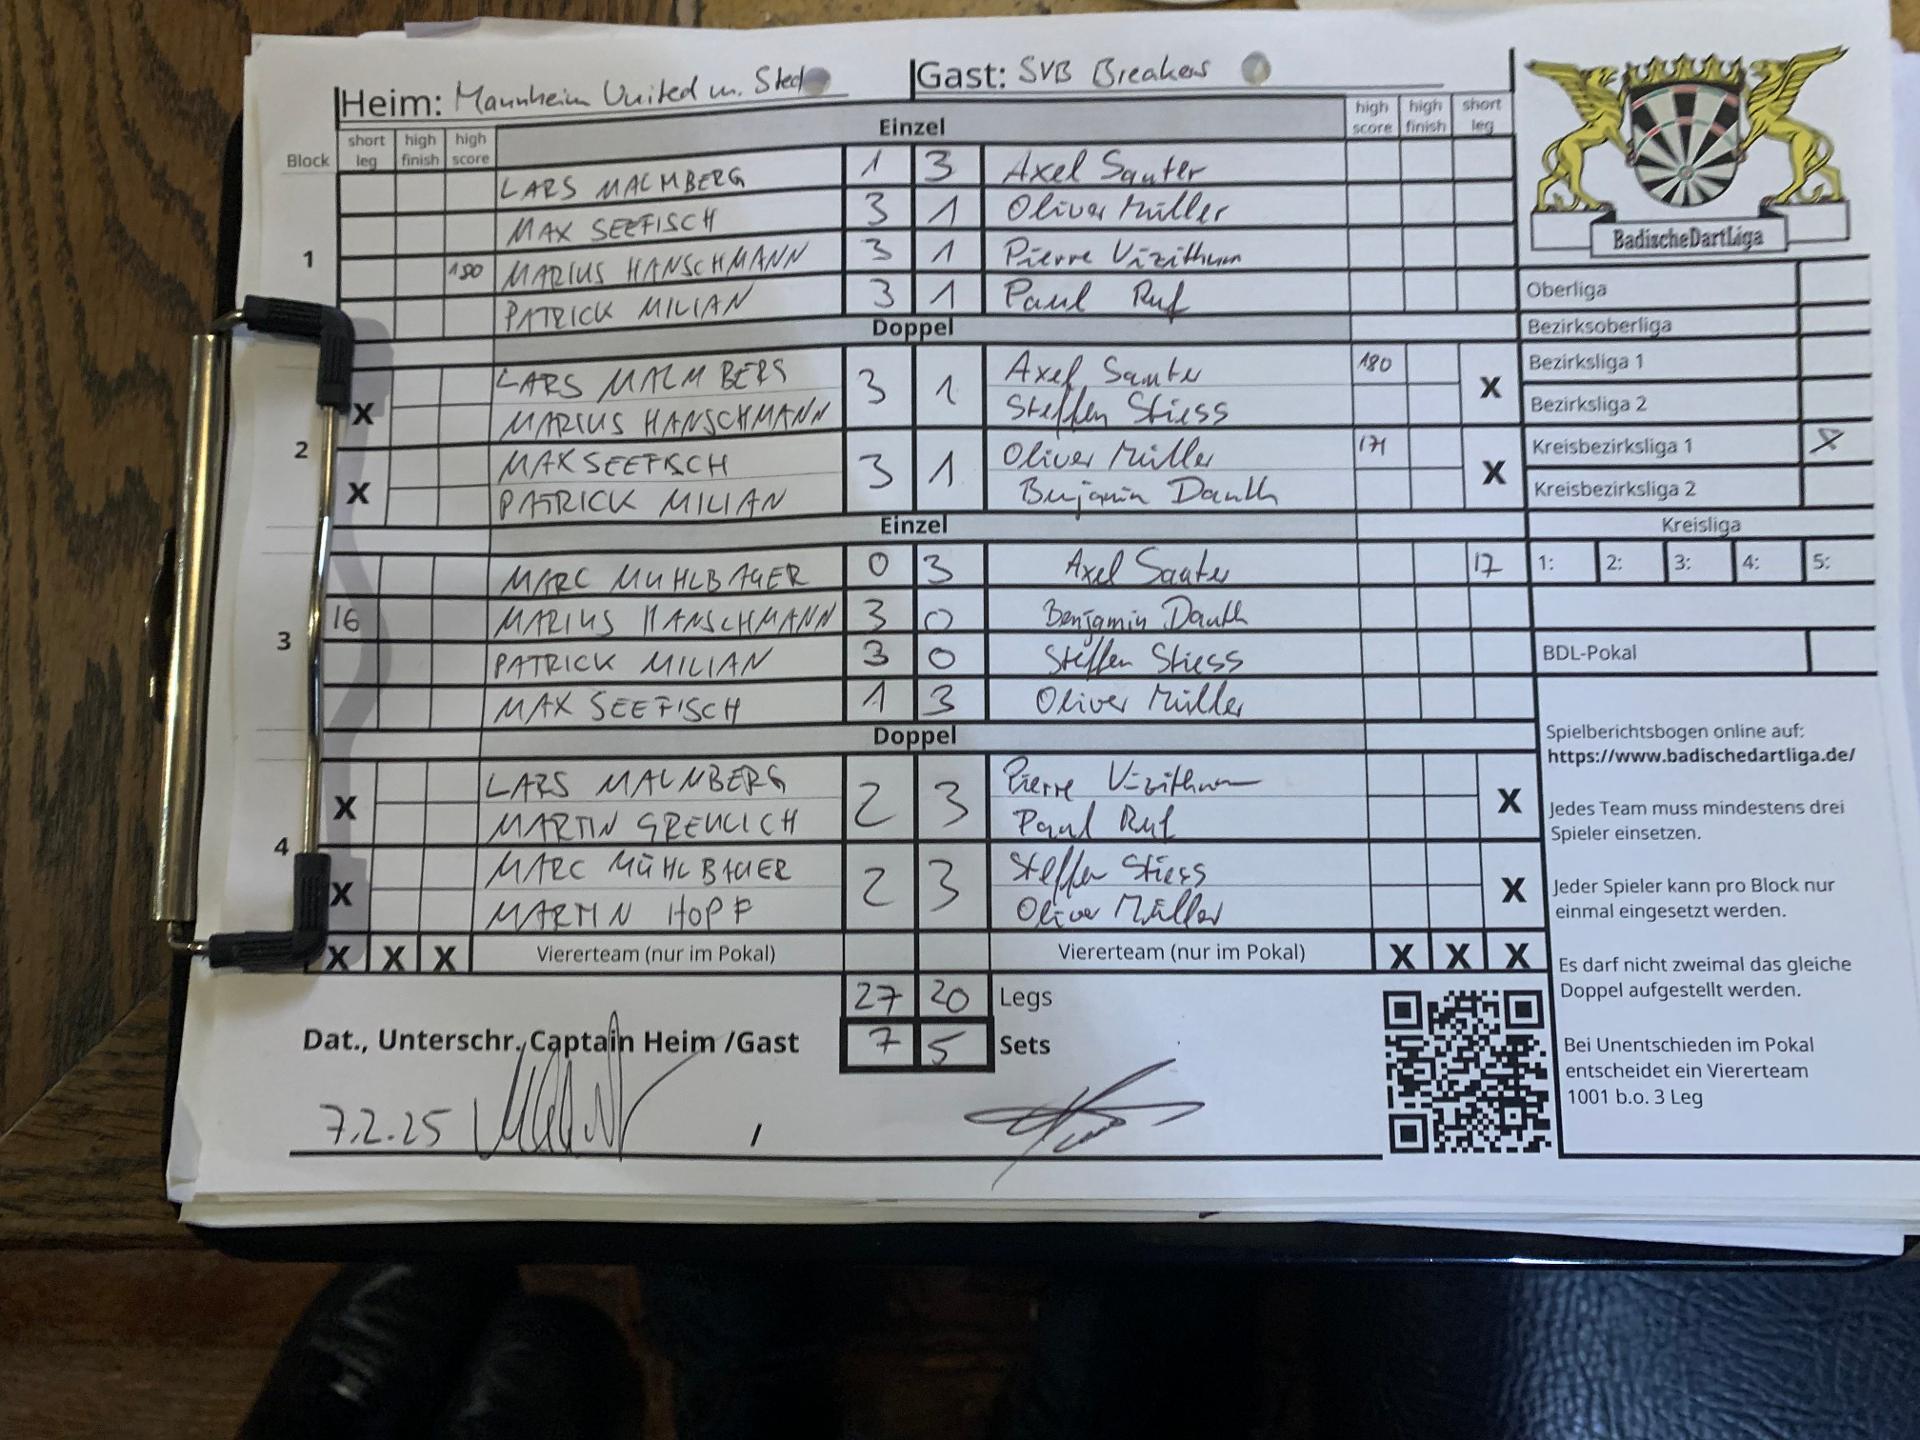 Heim: Mannheim United m. Gast: SVB Breakers
Block short leg high finish high score Einzel high score high finish short leg
LARS MALMBERG 1 3 Axel Sauter
MAX SEEFISCH 3 1 Oliver Müller
1 180 MARIUS HANSCHMANN 3 1 Pierre Vizithum
PATRICK MILIAN 3 1 Paul Ruf
Doppel
LARS MALMBERG 3 1 Axel Sauter 180
X MARIUS HANSCHMANN Steffen Stiess X
2
MAX SEEFISCH 3 1 Oliver Müller 171
X PATRICK MILIAN Benjamin Dauth X
Einzel
MARC MUHLBAUER 0 3 Axel Sauter 17
16 MARIUS HANSCHMANN 3 0 Benjamin Dauth
3
PATRICK MILIAN 3 0 Steffen Stiess
MAX SEEFISCH 1 3 Oliver Müller
Doppel
LARS MALMBERG 2 3 Pierre Vizithum
X MARTIN GREULICH Paul Ruf X
4
MARC MÜHLBAUER 2 3 Steffen Stiess
X MARTIN HOPF Oliver Müller X
X X X Viererteam (nur im Pokal) Viererteam (nur im Pokal) X X X
27 20 Legs
Dat., Unterschr. Captain Heim /Gast 7 5 Sets
7.2.25 /
BadischeDartLiga
Oberliga
Bezirksoberliga
Bezirksliga 1
Bezirksliga 2
Kreisbezirksliga 1 X
Kreisbezirksliga 2
Kreisliga
1: 2: 3: 4: 5:
BDL-Pokal
Spielberichtsbogen online auf:
https://www.badischedartliga.de/
Jedes Team muss mindestens drei
Spieler einsetzen.
Jeder Spieler kann pro Block nur
einmal eingesetzt werden.
Es darf nicht zweimal das gleiche
Doppel aufgestellt werden.
Bei Unentschieden im Pokal
entscheidet ein Viererteam
1001 b.o. 3 Leg